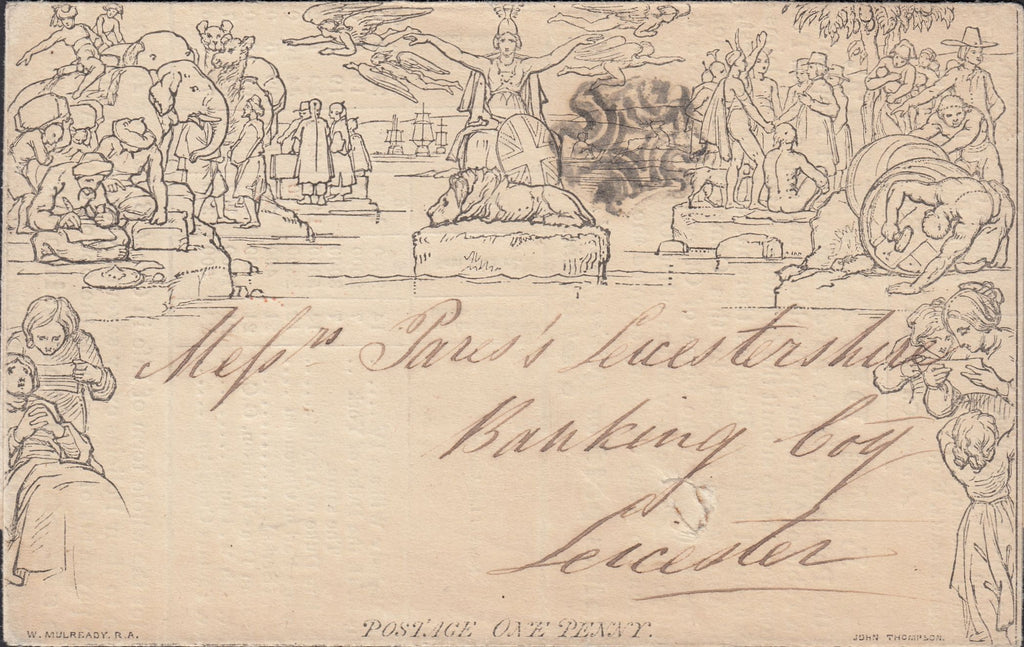 Messrs Pares's Leicestershire
Banking Coy
Leicester
W. MULREADY. R.A.
POSTAGE ONE PENNY.
JOHN THOMPSON.